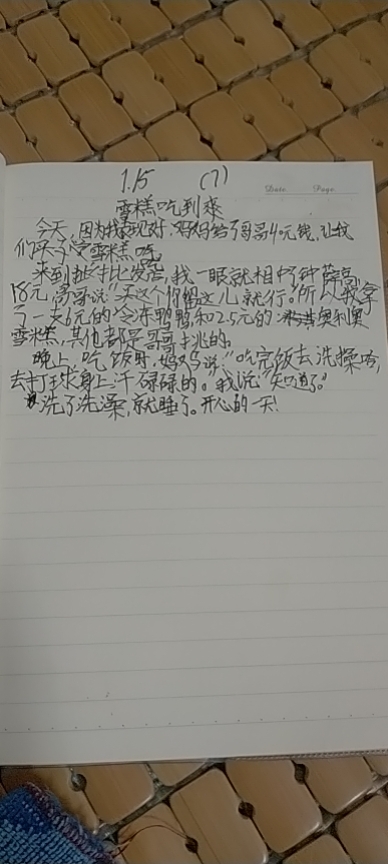 1.15 (7)
Date: Page:
雪糕吃到爽
今天,因为我表现好.妈妈给了哥哥40元钱,让我
们买了雪糕吃
来到批发店,我一眼就相中钟薛高,
18元,哥哥说“买这个你留这儿就行。”所以我拿
了一支6元的冷冻鸭鸭和2.5元的奥利奥
雪糕,其他都是哥哥挑的。
晚上,吃饭时,妈妈说:“吃完饭去洗澡哈,
去打球身上汗碌碌的。”我说“知道了。”
洗了洗澡,就睡了。开心的一天!